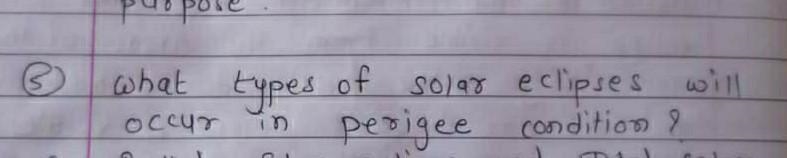 purpose.
5 what types of solar eclipses will
occur in perigee condition ?